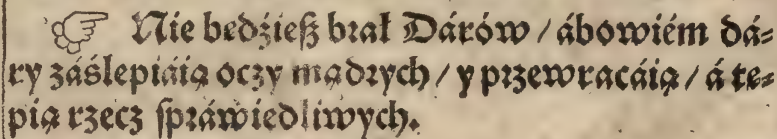 ☞ Nie będźieß brał Dárów / ábowiém dá⸗
ry záślepiáią oczy mądrych / y przewracáią / á tę⸗
pią rzecz ſpráwiedliwych.